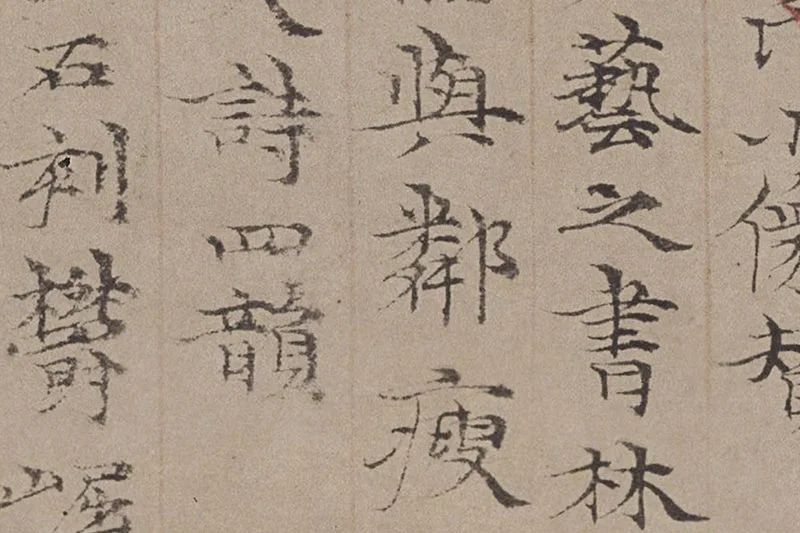 傍
藝之書林
與鄰瘦
詩四韻
石刻鬱崛